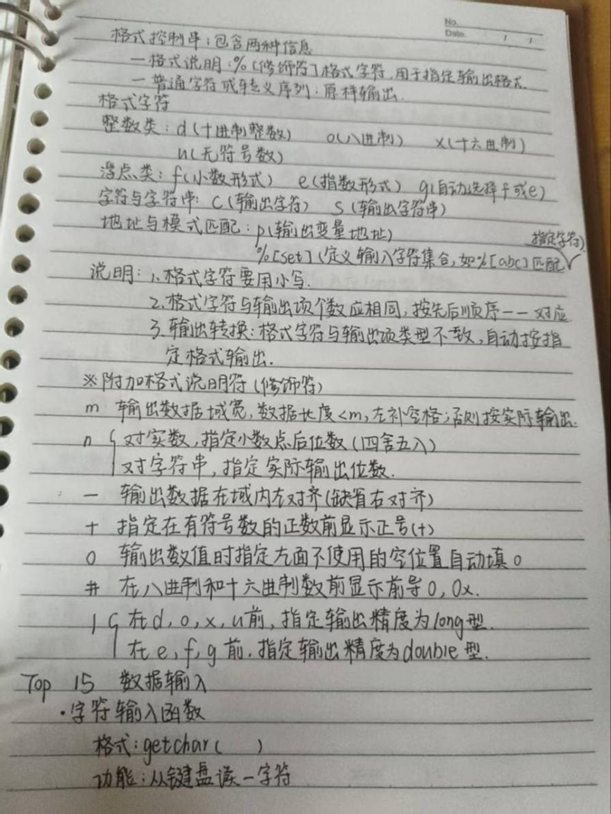 No.
Date / /
格式控制串:包含两种信息
— 格式说明:%[修饰符]格式字符,用于指定输出格式
— 普通字符或转义序列:原样输出.
格式字符
整数类:d(十进制整数) o(八进制) x(十六进制)
u(无符号数)
浮点类:f(小数形式) e(指数形式) g(自动选择f或e)
字符与字符串:c(输出字符) s(输出字符串)
地址与模式匹配:p(输出变量地址)
%[set](定义输入字符集合,如%[abc]匹配指定字符)
说明:1.格式字符要用小写.
2.格式字符与输出项个数应相同,按先后顺序一一对应
3.输出转换:格式字符与输出项类型不致,自动按指
定格式输出.
※附加格式说明符(修饰符)
m 输出数据域宽,数据长度<m,左补空格;否则按实际输出.
n { 对实数,指定小数点后位数(四舍五入)
对字符串,指定实际输出位数.
— 输出数据在域内左对齐(缺省右对齐)
+ 指定在有符号数的正数前显示正号(+)
0 输出数值时指定左面不使用的空位置自动填0
# 在八进制和十六进制数前显示前导0,0x.
l { 在d,o,x,u前,指定输出精度为long型.
在e,f,g前,指定输出精度为double型.
Top 15 数据输入
·字符输入函数
格式:getchar( )
功能:从键盘读一字符